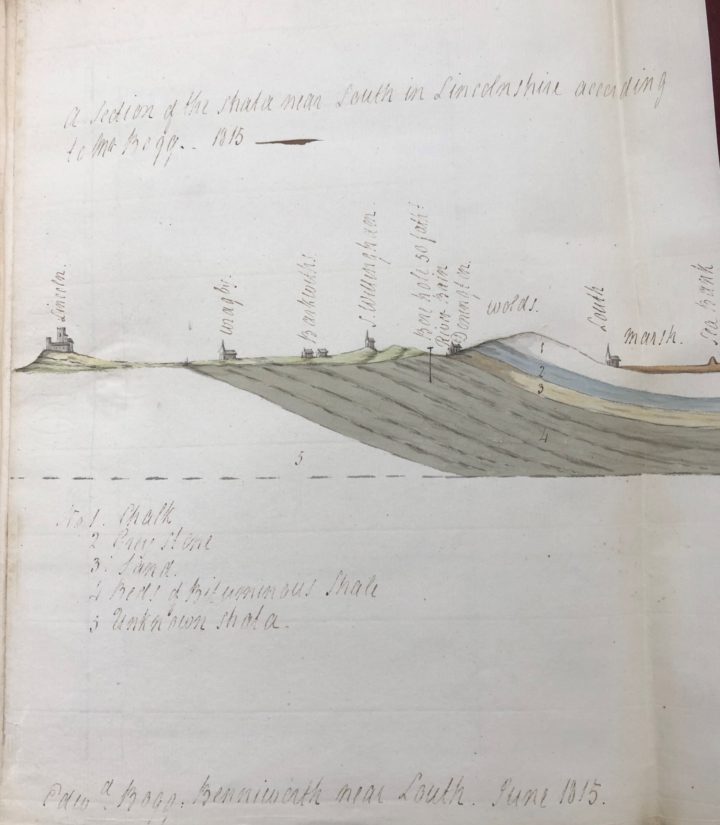 A Section of the strata near Louth in Lincolnshire according
to Mr Bogg.. 1815
Lincoln.
Wragby.
Barkwiths.
S. Willingham.
Bore hole 50 fath.s
River Bain
Donington.
wolds.
Louth
marsh.
Sea Bank
1
2
3
4
5
No 1. Chalk
2 Grey stone
3. Sand.
4 Beds of Bituminous Shale
5 Unknown strata.
Edw.d Bogg. Benniworth near Louth. June 1815.